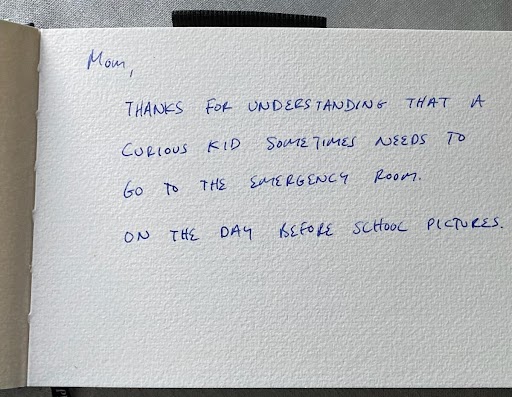 Mom,
THANKS FOR UNDERSTANDING THAT A
CURIOUS KID SOMETIMES NEEDS TO
GO TO THE EMERGENCY ROOM.
ON THE DAY BEFORE SCHOOL PICTURES.